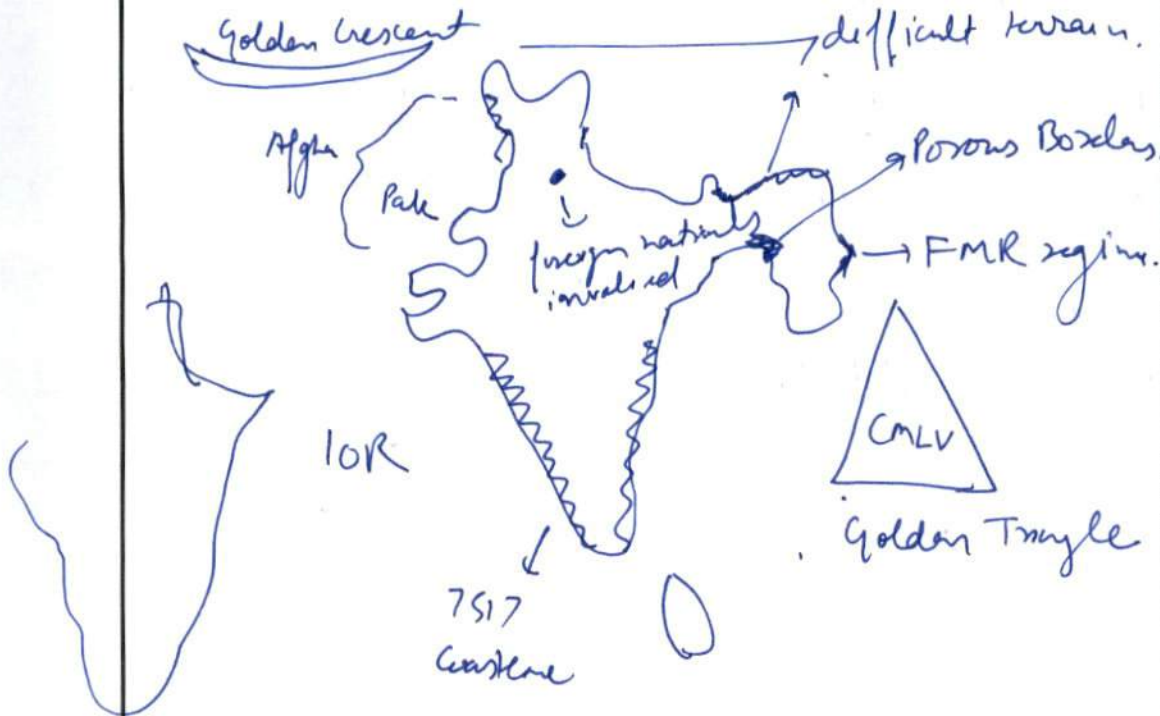 Golden Crescent
difficult terrain.
Afghn
Pak
Porous Borders.
foreign nationals
involved
FMR regime.
IOR
CMLV
Golden Triangle
7517
Coastline